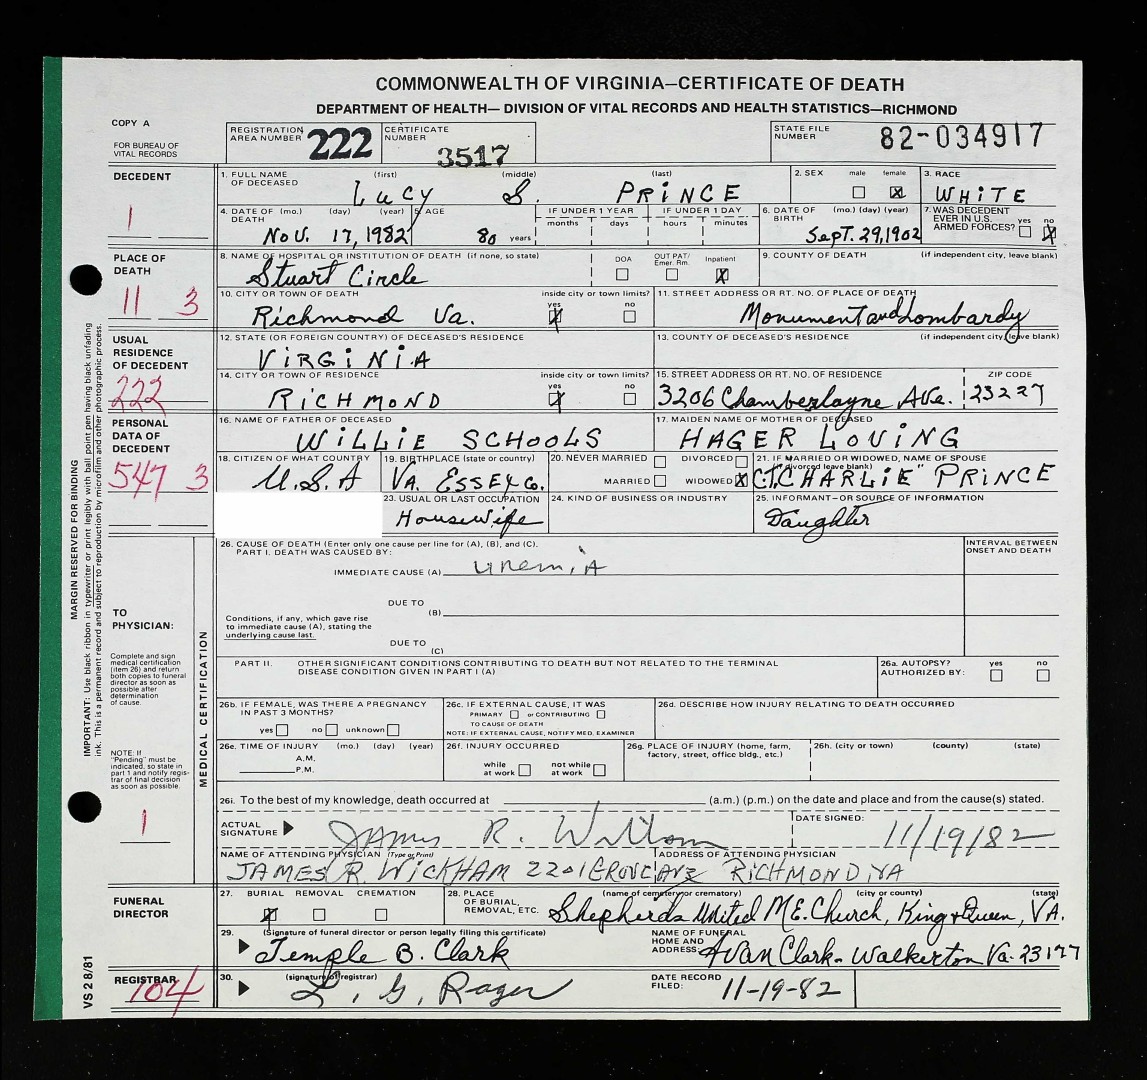 COMMONWEALTH OF VIRGINIA—CERTIFICATE OF DEATH
DEPARTMENT OF HEALTH— DIVISION OF VITAL RECORDS AND HEALTH STATISTICS—RICHMOND
COPY A
FOR BUREAU OF VITAL RECORDS
REGISTRATION AREA NUMBER 222
CERTIFICATE NUMBER 3517
STATE FILE NUMBER 82-034917
DECEDENT
1
1. FULL NAME OF DECEASED (first) (middle) (last)
Lucy S. PRINCE
2. SEX male female ☒
3. RACE
WHITE
4. DATE OF DEATH (mo.) (day) (year)
Nov. 17, 1982
5. AGE
80 years
IF UNDER 1 YEAR months days
IF UNDER 1 DAY hours minutes
6. DATE OF BIRTH (mo.) (day) (year)
Sept. 29, 1902
7. WAS DECEDENT EVER IN U.S. ARMED FORCES? yes no ☒
PLACE OF DEATH
11 3
8. NAME OF HOSPITAL OR INSTITUTION OF DEATH (if none, so state)
Stuart Circle
DOA OUT PAT/ Emer. Rm. Inpatient ☒
9. COUNTY OF DEATH (if independent city, leave blank)
10. CITY OR TOWN OF DEATH inside city or town limits? yes ☒ no
Richmond Va.
11. STREET ADDRESS OR RT. NO. OF PLACE OF DEATH
Monument and Lombardy
USUAL RESIDENCE OF DECEDENT
222
12. STATE (OR FOREIGN COUNTRY) OF DECEASED'S RESIDENCE
VIRGINIA
13. COUNTY OF DECEASED'S RESIDENCE (if independent city, leave blank)
14. CITY OR TOWN OF RESIDENCE inside city or town limits? yes ☒ no
RICHMOND
15. STREET ADDRESS OR RT. NO. OF RESIDENCE ZIP CODE
3206 Chamberlayne Ave. 23227
PERSONAL DATA OF DECEDENT
547 3
16. NAME OF FATHER OF DECEASED
WILLIE SCHOOLS
17. MAIDEN NAME OF MOTHER OF DECEASED
HAGER LOVING
18. CITIZEN OF WHAT COUNTRY
U.S.A
19. BIRTHPLACE (state or country)
VA. ESSEX Co.
20. NEVER MARRIED DIVORCED MARRIED WIDOWED ☒
21. IF MARRIED OR WIDOWED, NAME OF SPOUSE (if divorced leave blank)
C.T. "CHARLIE" PRINCE
23. USUAL OR LAST OCCUPATION
Housewife
24. KIND OF BUSINESS OR INDUSTRY
25. INFORMANT—OR SOURCE OF INFORMATION
Daughter
MARGIN RESERVED FOR BINDING
IMPORTANT: Use black ribbon in typewriter or print legibly with ball point pen having black unfading
ink. This is a permanent record and subject to reproduction by microfilm and other photographic process.
TO PHYSICIAN:
Complete and sign medical certification (item 26) and return both copies to funeral director as soon as possible after determination of cause.
NOTE: If "Pending" must be indicated, so state in part 1 and notify registrar of final decision as soon as possible.
1
MEDICAL CERTIFICATION
26. CAUSE OF DEATH (Enter only one cause per line for (A), (B), and (C).
PART I. DEATH WAS CAUSED BY:
INTERVAL BETWEEN ONSET AND DEATH
IMMEDIATE CAUSE (A) uremia
DUE TO (B)
Conditions, if any, which gave rise to immediate cause (A), stating the underlying cause last.
DUE TO (C)
PART II. OTHER SIGNIFICANT CONDITIONS CONTRIBUTING TO DEATH BUT NOT RELATED TO THE TERMINAL DISEASE CONDITION GIVEN IN PART I (A)
26a. AUTOPSY? AUTHORIZED BY: yes no
26b. IF FEMALE, WAS THERE A PREGNANCY IN PAST 3 MONTHS? yes no unknown
26c. IF EXTERNAL CAUSE, IT WAS PRIMARY or CONTRIBUTING TO CAUSE OF DEATH
NOTE: IF EXTERNAL CAUSE, NOTIFY MED. EXAMINER
26d. DESCRIBE HOW INJURY RELATING TO DEATH OCCURRED
26e. TIME OF INJURY (mo.) (day) (year) A.M. P.M.
26f. INJURY OCCURRED while at work not while at work
26g. PLACE OF INJURY (home, farm, factory, street, office bldg., etc.)
26h. (city or town) (county) (state)
26i. To the best of my knowledge, death occurred at (a.m.) (p.m.) on the date and place and from the cause(s) stated.
ACTUAL SIGNATURE James R. Wickham
DATE SIGNED: 11/19/82
NAME OF ATTENDING PHYSICIAN (Type or Print) ADDRESS OF ATTENDING PHYSICIAN
JAMES R. WICKHAM 2201 GROVE AVE RICHMOND VA
FUNERAL DIRECTOR
27. BURIAL ☒ REMOVAL CREMATION
28. PLACE OF BURIAL, REMOVAL, ETC. (name of cemetery or crematory) (city or county) (state)
Shepherds United M.E. Church, King & Queen, VA.
29. (Signature of funeral director or person legally filing this certificate)
Temple B. Clark
NAME OF FUNERAL HOME AND ADDRESS:
A Van Clark- Walkerton Va- 23177
REGISTRAR
104
30. (signature of registrar)
L. G. Rager
DATE RECORD FILED: 11-19-82
VS 2 8/81